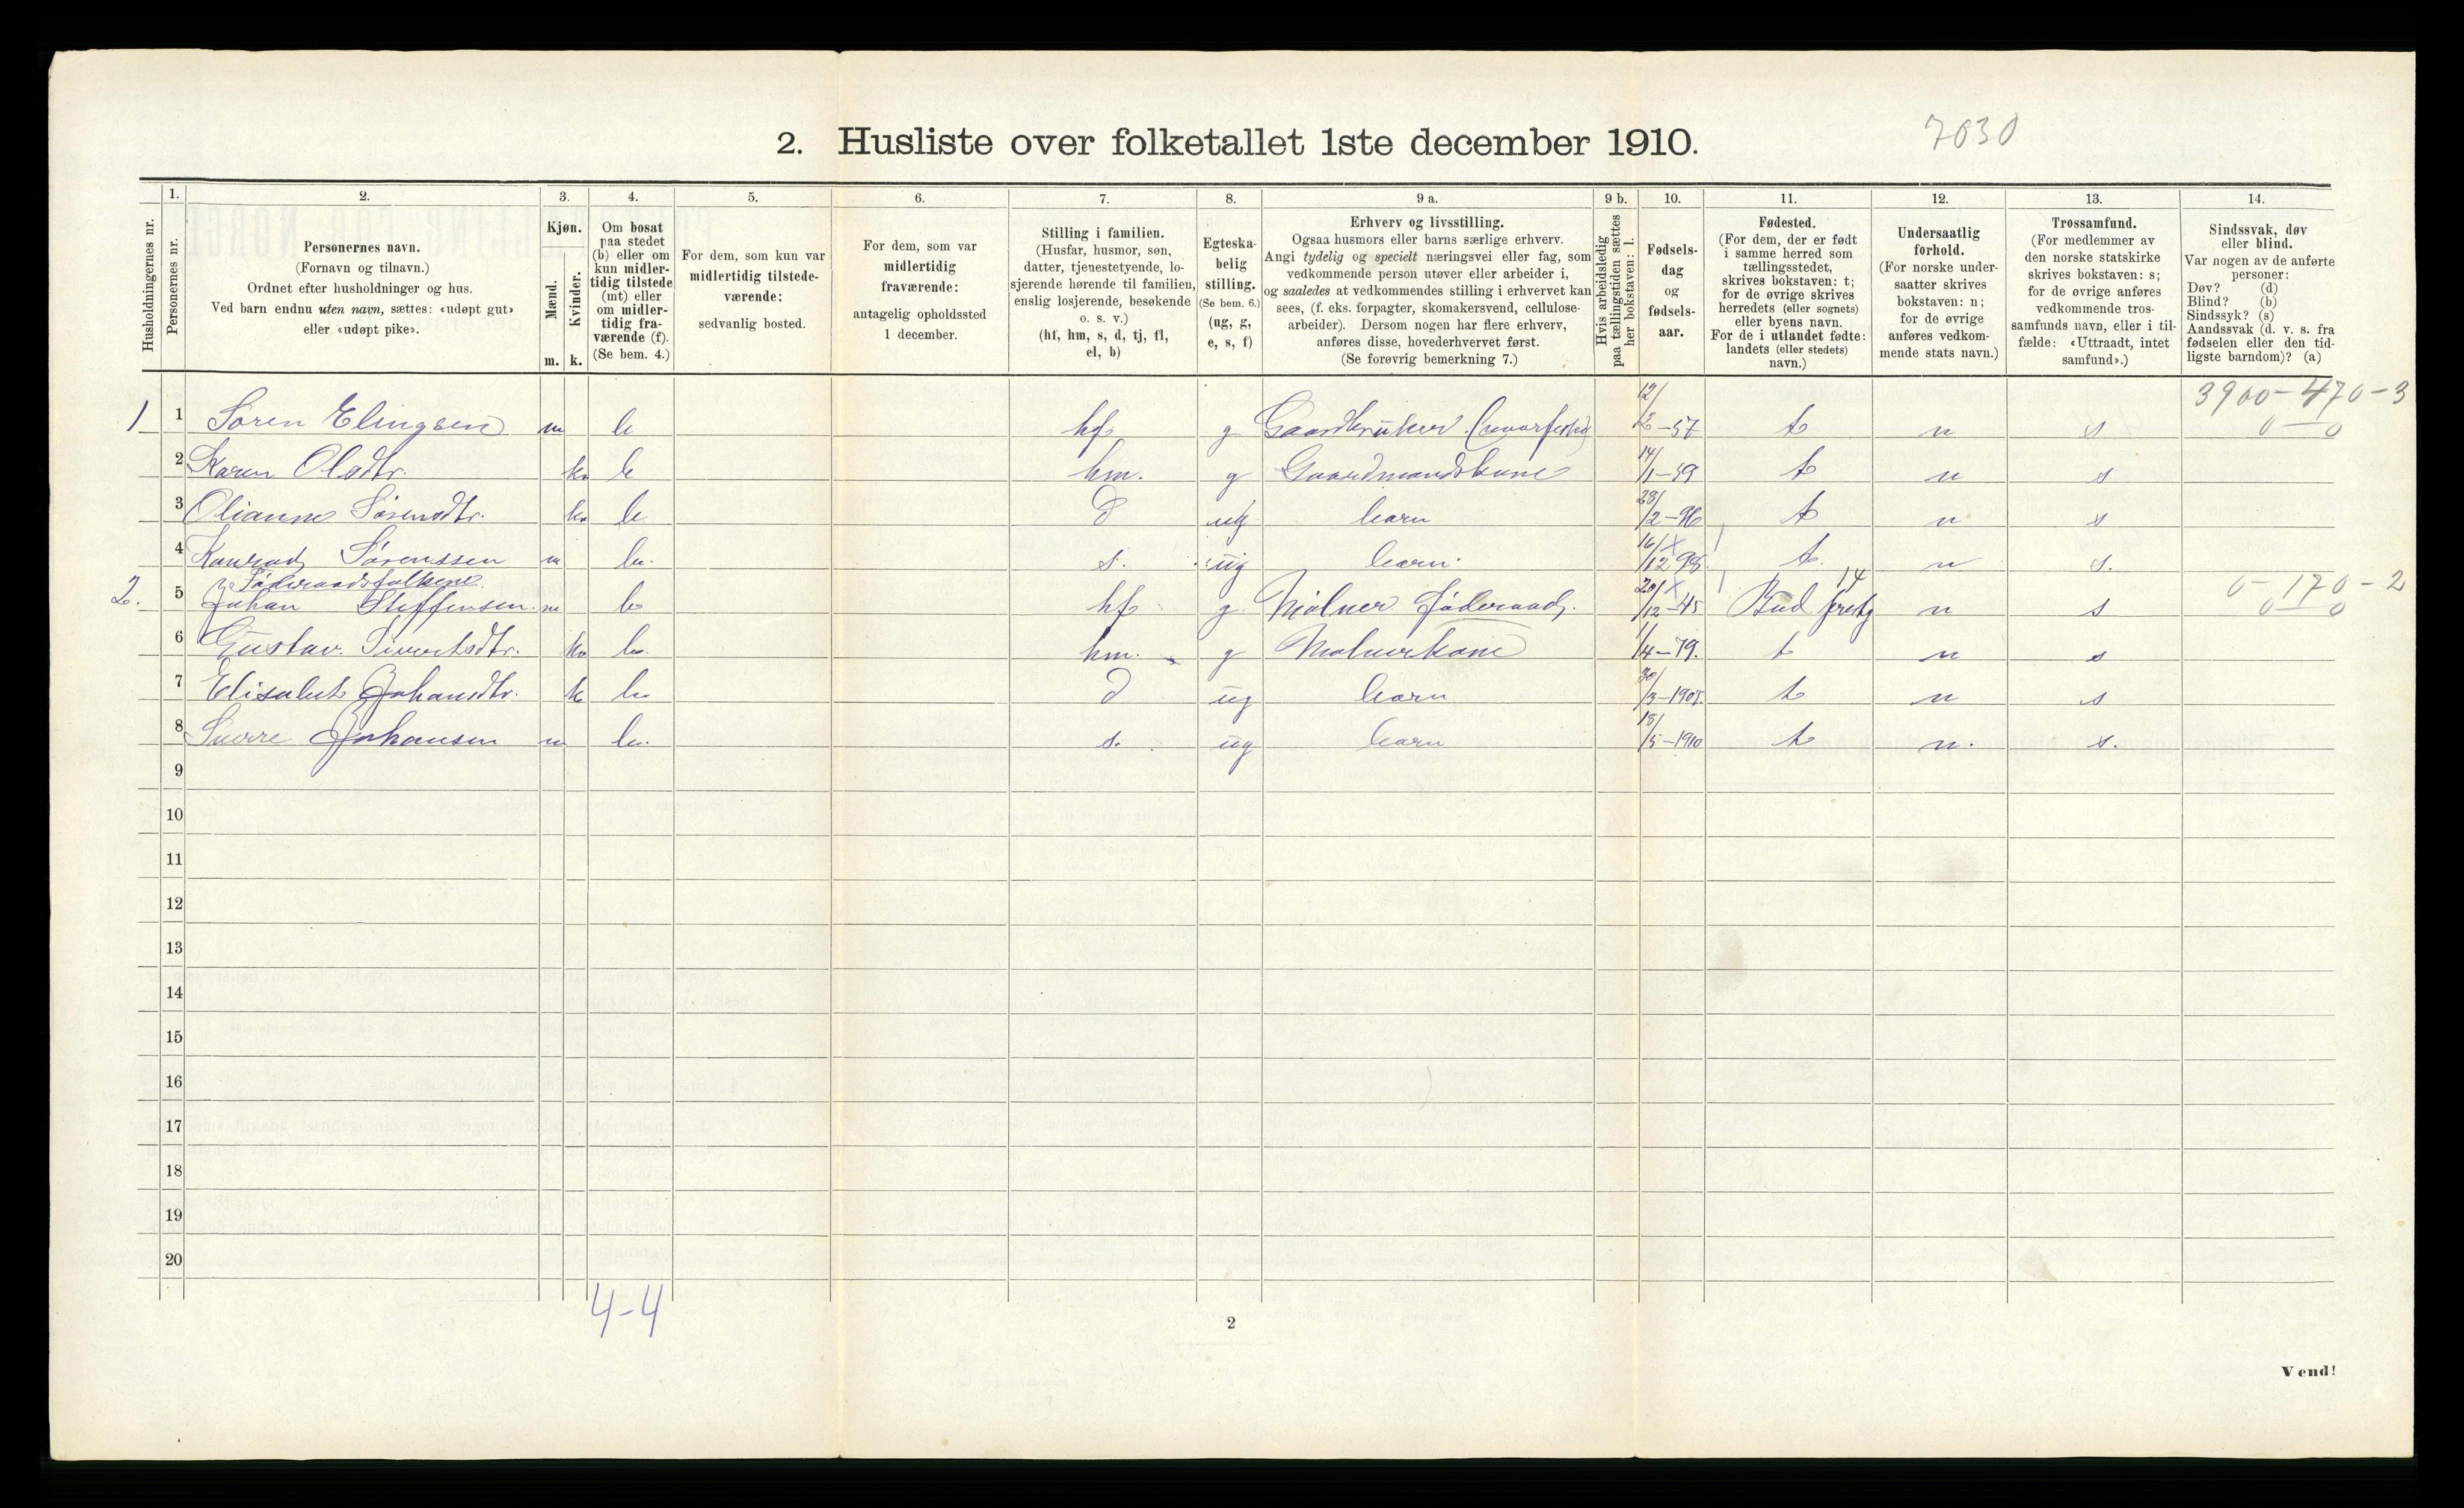 7030
2. Husliste over folketallet 1ste december 1910.
Husholdningernes nr.
1. Personernes nr.
2. Personernes navn. (Fornavn og tilnavn.) Ordnet efter husholdninger og hus. Ved barn endnu uten navn, sættes: «udøpt gut» eller «udøpt pike».
3. Kjøn. Mænd. m. Kvinder. k.
4. Om bosat paa stedet (b) eller om kun midlertidig tilstede (mt) eller om midlertidig fraværende (f). (Se bem. 4.)
5. For dem, som kun var midlertidig tilstedeværende: sedvanlig bosted.
6. For dem, som var midlertidig fraværende: antagelig opholdssted 1 december.
7. Stilling i familien. (Husfar, husmor, søn, datter, tjenestetyende, losjerende hørende til familien, enslig losjerende, besøkende o. s. v.) (hf, hm, s, d, tj, fl, el, b)
8. Egteskabelig stilling. (Se bem. 6.) (ug, g, e, s, f)
9 a. Erhverv og livsstilling. Ogsaa husmors eller barns særlige erhverv. Angi tydelig og specielt næringsvei eller fag, som vedkommende person utøver eller arbeider i, og saaledes at vedkommendes stilling i erhvervet kan sees, (f. eks. forpagter, skomakersvend, cellulosearbeider). Dersom nogen har flere erhverv, anføres disse, hovederhvervet først. (Se forøvrig bemerkning 7.)
9 b. Hvis arbeidsledig paa tællingstiden sættes her bokstaven: l.
10. Fødselsdag og fødselsaar.
11. Fødested. (For dem, der er født i samme herred som tællingsstedet, skrives bokstaven: t; for de øvrige skrives herredets (eller sognets) eller byens navn. For de i utlandet fødte: landets (eller stedets) navn.)
12. Undersaatlig forhold. (For norske undersaatter skrives bokstaven: n; for de øvrige anføres vedkommende stats navn.)
13. Trossamfund. (For medlemmer av den norske statskirke skrives bokstaven: s; for de øvrige anføres vedkommende trossamfunds navn, eller i tilfælde: «Uttraadt, intet samfund».)
14. Sindssvak, døv eller blind. Var nogen av de anførte personer: Døv? (d) Blind? (b) Sindssyk? (s) Aandssvak (d. v. s. fra fødselen eller den tidligste barndom)? (a)
3900-470-3
0-0
1 1 Søren Elingsen m b hf g Gaardbruker 12/2-57 t n s
2 Karen Olsdtr. k b hm. g Gaardmandskone 14/1-59 t n s
3 Olianna Sørensdtr. k b d ug barn 28/2-96 t n s
4 Konrad Sørenssen m b. s. ug barn. 16/12 98 t. n s.
Føderaadsfolkene 14 0-170-2
2. 5 Johan Steffensen m b hf g Mølner føderaad. 20/12-45 Bud n s 0-0
6 Gustav. Sivertsdtr. k b. hm. g Mølnerkone 1/4-79. t n s
7 Elisabet Johansdtr. k b. d ug barn 30/3-1905. t n s
8 Sverre Johansen m b. s. ug barn 18/5-1910 t n. s.
9
10
11
12
13
14
15
16
17
18
19
20
4-4
2
Vend!